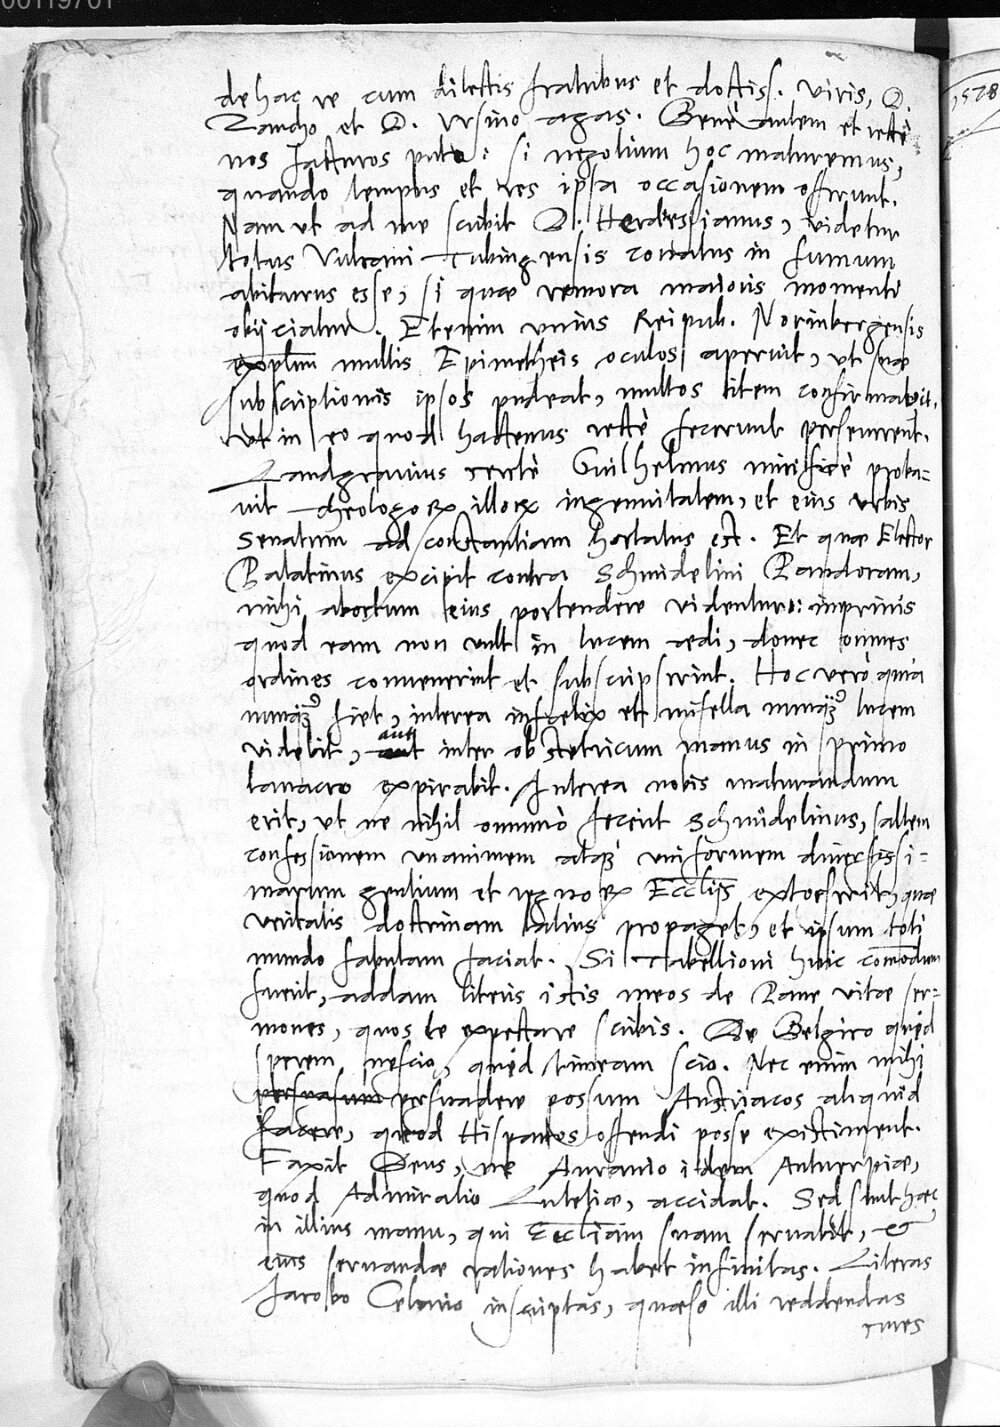 00119701
1578
de hac re cum dilectis fratribus et doctiss. viris, D.
Zancho et D. Ursino agas. Benè autem et rectè
nos facturos puto: si negotium hoc maturemus,
quando tempus et res ipsa occasionem offerunt.
Nam ut ad me scribit D. Herdessianus, videtur
totus Vulcani Tubingensis conatus in fumum
abiturus esse, si quae remora maioris momenti
obijciatur. Etenim unius Reipub. Norinbergensis
exemplum multis Epimetheis oculos aperuit, ut suae
subscriptionis ipsos pudeat, multos item confirmavit,
ut in eo quod hactenus rectè fecerunt perseverent.
Landgravius certè Guilhelmus mirificè proba-
vit theologorum illorum ingenuitatem, et eius urbis
Senatum ad constantiam hortatus est. Et quae Elector
Palatinus excipit contra Schmidelini Pandoram,
mihi abortum eius portendere videntur: inprimis
quod eam non vult in lucem aedi, donec omnes
ordines convenerint et subscripserint. Hoc verò quia
nunquam fiet, interea infoelix et misella nunquam lucem
videbit, aut inter obstetricum manus in primo
lavacro expirabit. Interea nobis maturandum
erit, ut ne nihil omninò fecerit Schmidelinus, saltem
confessionem unanimem atque uniformem diversissi-
marum gentium et regnorum Ecclijs extorserit, quae
veritatis doctrinam latius propaget, et ipsum toti
mundo fabulam faciat. Si Tabellioni huic comodum
fuerit, addam literis istis meos de Pane vitae ser-
mones, quos te expectare scribis. De Belgico quid
sperem nescio, quid timeam scio. Nec enim mihi
persuasum persuadere possum Austriacos aliquid
facere, quod Hispanos offendi posse existiment.
Faxit Deus, ne Auranio idem Antuerpiae,
quod Admiralio Lutetiae, accidat. Sed sunt haec
in illius manu, qui Eccliam suam servabit, et
eius servandae rationes habet infinitas. Literas
Jacobo Celario inscriptas, quaeso illi reddendas
cures